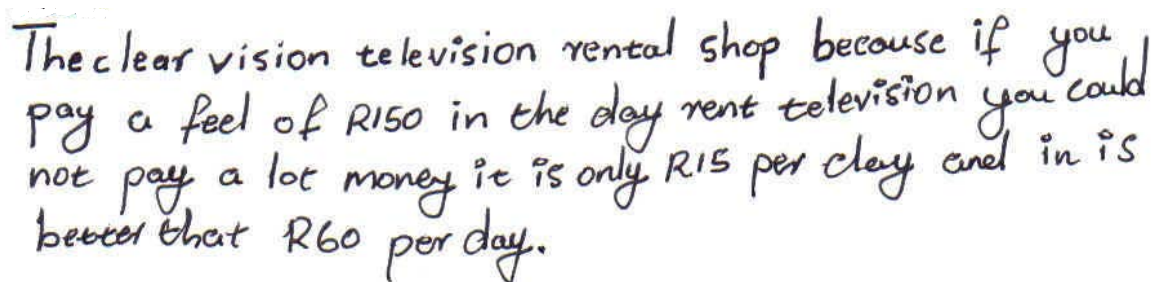 The clear vision television rental shop because if you
pay a feel of R150 in the day rent television you could
not pay a lot money it is only R15 per day and in is
better that R60 per day.